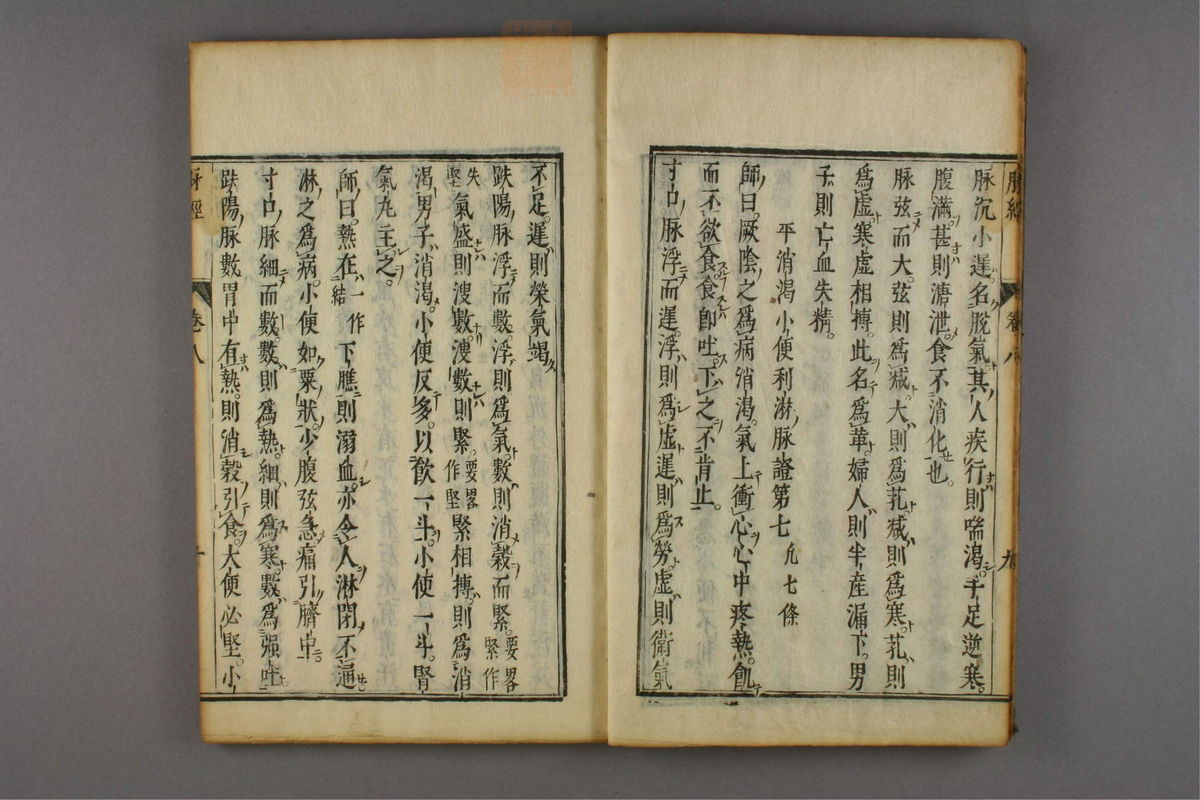 脉沉小遲名脫氣其人疾行則喘渇手足逆寒
腹滿甚則溏泄食不消化也
脉弦而大弦則爲减大則爲芤减則爲寒芤則
爲虛寒虛相搏此名爲革婦人則半産漏下男
子則亡血失精
平消渇小便利淋脉證第七 凢七條
師曰厥陰之爲病消渇氣上衝心心中疼熱飢
而不欲食食即吐下之不肯止
寸口脉浮而遲浮則爲虛遲則爲勞虛則衛氣
不足遲則榮氣竭
趺陽脉浮而數浮則爲氣數則消穀而緊要畧緊作
失堅氣盛則溲數溲數則緊要畧作堅緊相搏則爲消
渇男子消渇小便反多以飲一斗小便一斗腎
氣丸主之
師曰熱在一作結下膲則溺血亦令人淋閉不通
淋之爲病小便如粟狀少腹弦急痛引臍中
寸口脉細而數數則爲熱細則爲寒數爲强吐
趺陽脉數胃中有熱則消穀引食大便必堅小
脉經
卷八